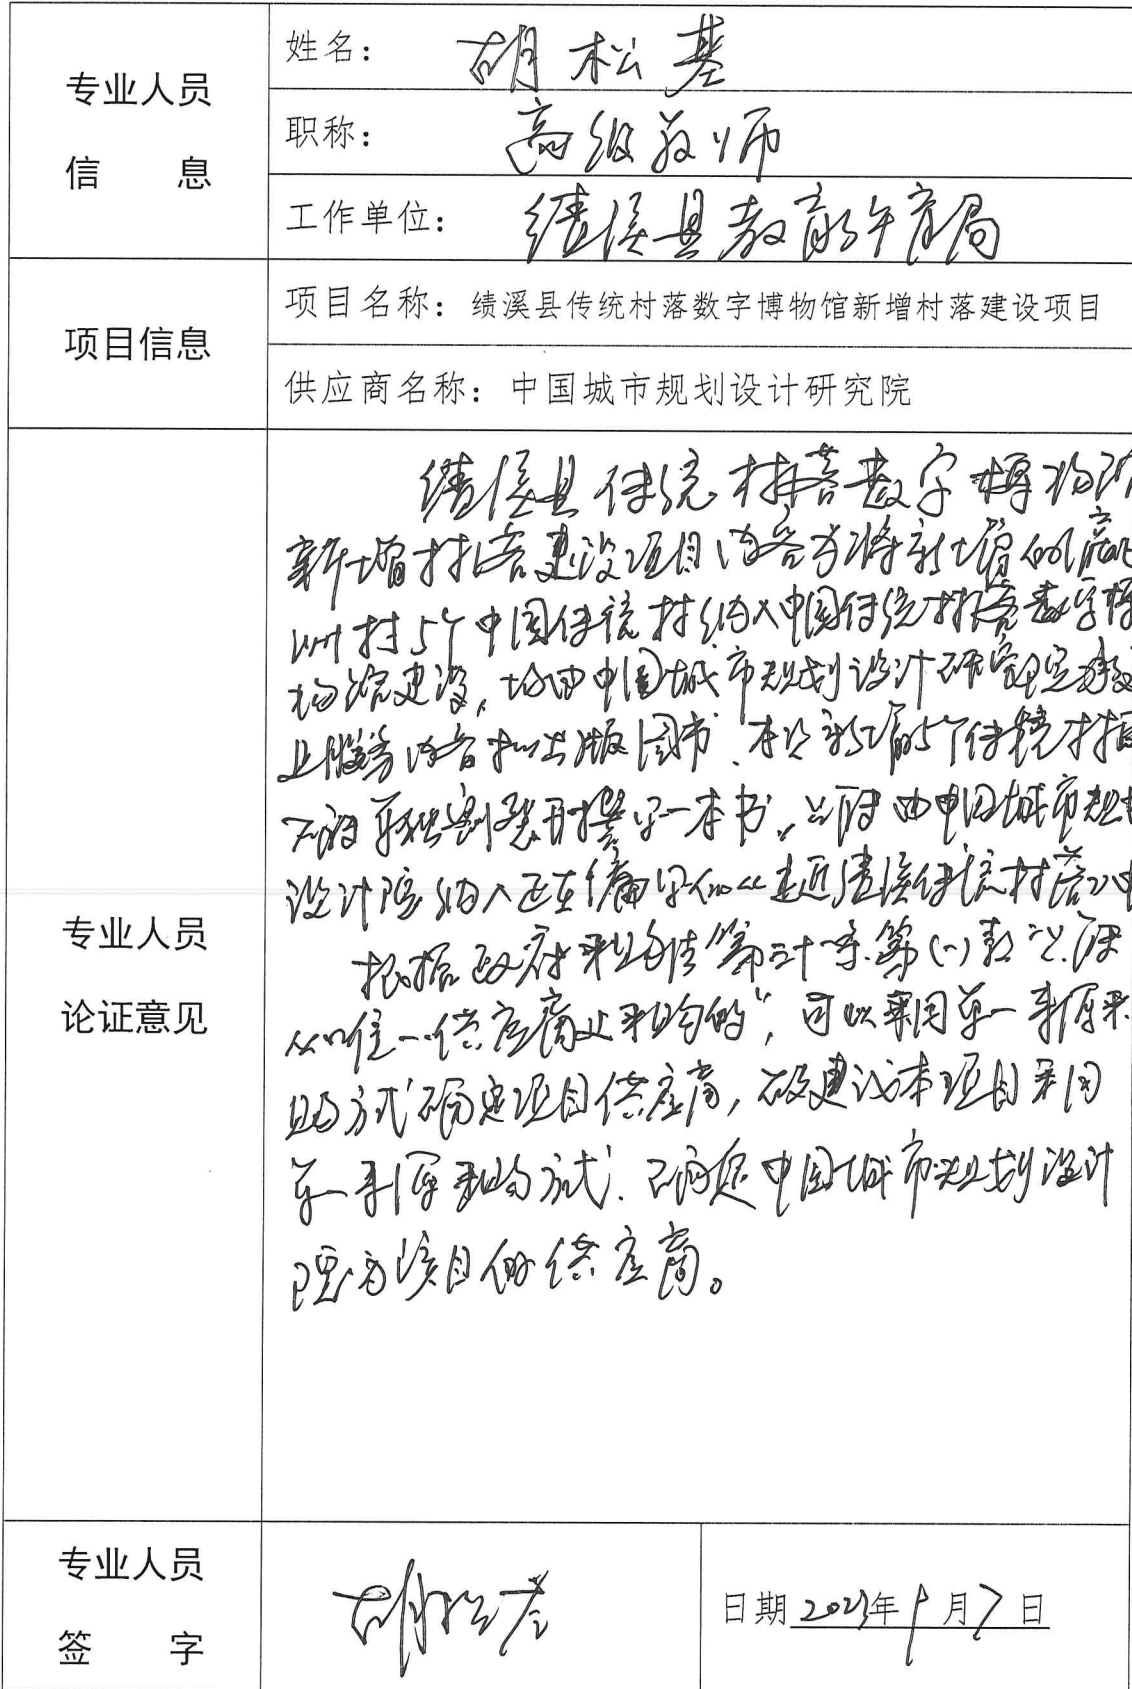 专业人员
信 息
姓名： 胡松基
职称： 高级教师
工作单位： 绩溪县教育体育局
项目信息
项目名称：绩溪县传统村落数字博物馆新增村落建设项目
供应商名称：中国城市规划设计研究院
专业人员
论证意见
绩溪县传统村落数字博物馆
新增村落建设项目内容为将新增的
村5个中国传统村纳入中国传统村落数字博
物馆建设，均由中国城市规划设计研究院
服务内容 出版图书、本次新增的5个传统村
一本书，只能由中国城市规划
设计院纳入正在编写的《走近绩溪传统村落》中
根据政府采购法第三十一条第(一)款"只能
从唯一供应商处采购的"，可以采用单一来源采
购方式确定项目供应商，故建议本项目采用
单一来源采购方式、确定中国城市规划设计
院为该项目的供应商。
专业人员
签 字
胡松基
日期 2023年 月7日